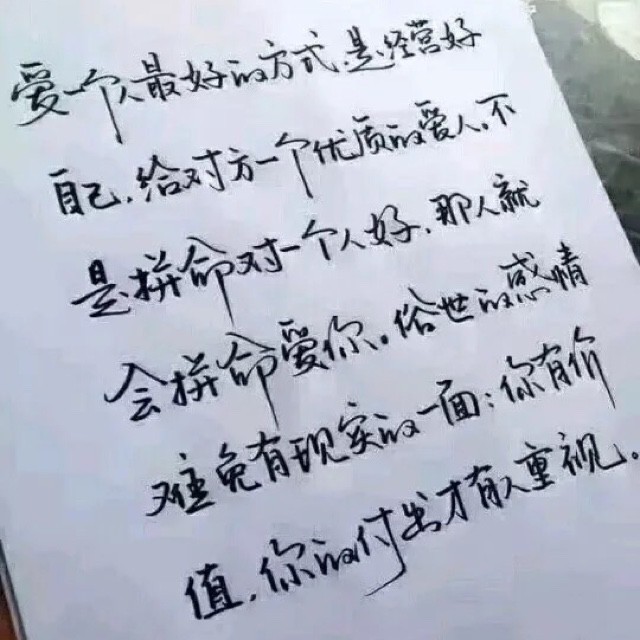 爱一个人最好的方式是经营好
自己，给对方一个优质的爱人，不
是拼命对一个人好，那人就
会拼命爱你。俗世的感情
难免有现实的一面：你有价
值，你的付出才有人重视。